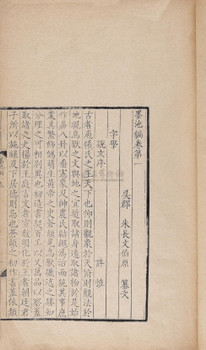 墨池編卷第一
吳郡 朱長文伯原 纂文
字學
說文序 許慎
古者庖犧氏之王天下也仰則觀象於天俯則觀法於
地視鳥獸之文與地之宜近取諸身遠取諸物於是始
作易八卦以垂憲象及神農氏結繩為治而統其事庶
業其繁飾偽萌生黃帝之史倉頡見鳥獸蹄迒之迹知
分理之可相別異也初造書契百工以乂萬品以察蓋
取諸夬夬揚于王庭言文者宣教明化於王者朝廷君
子所以施祿及下居德則忌也倉頡之初作書蓋依類